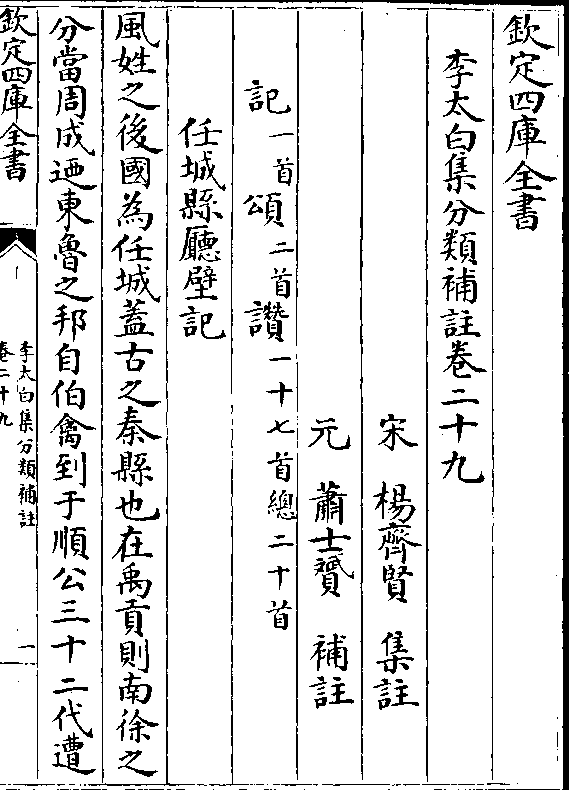 欽定四庫全書
李太白集分類補註卷二十九
宋　楊齊賢　集註
元　蕭士贇　補註
記一首頌二首讚一十七首總二十首
任城縣廳壁記
風姓之後國為任城蓋古之秦縣也在禹貢則南徐之
分當周成迺東魯之邦自伯禽到于順公三十二代遭
欽定四庫全書
李太白集分類補註
卷二十九
一